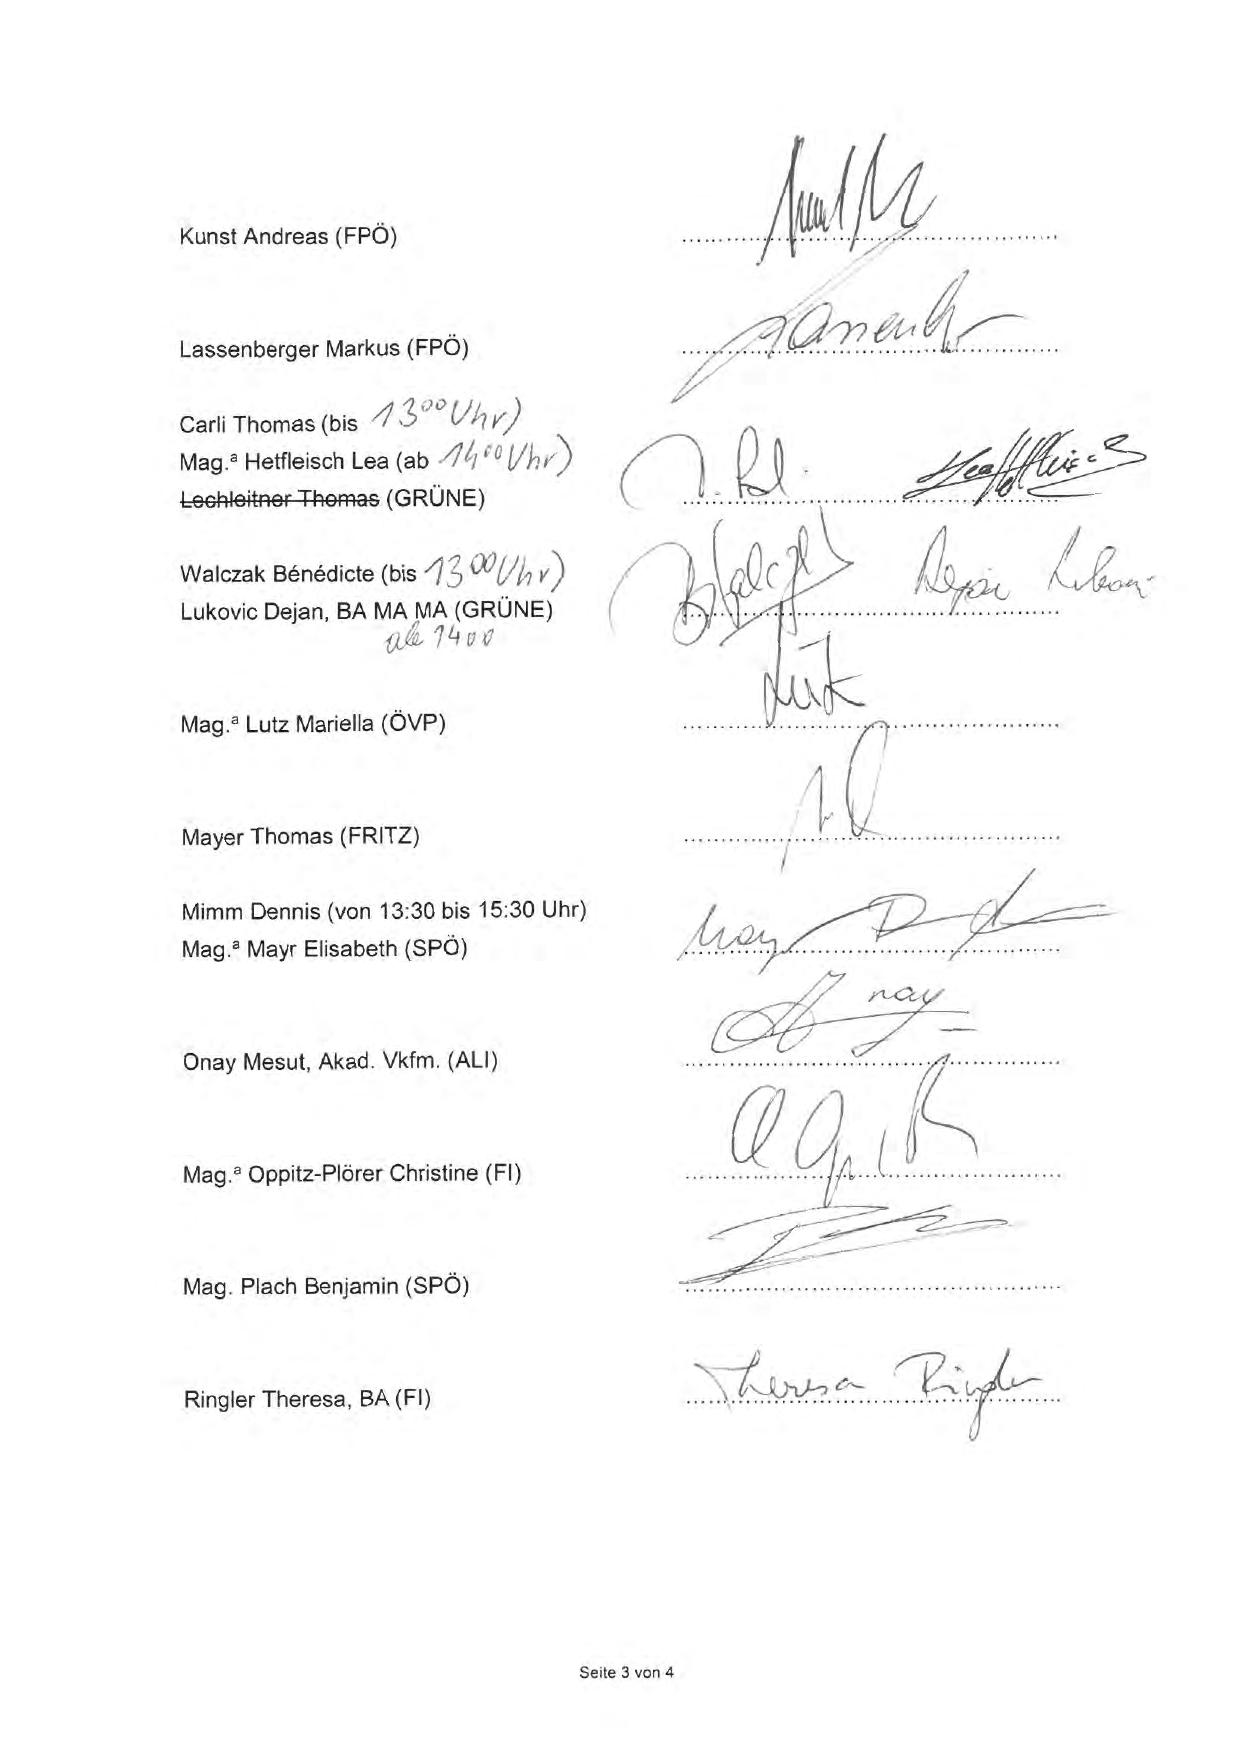 Kunst Andreas (FPÖ)
Lassenberger Markus (FPÖ)
Carli Thomas (bis 13⁰⁰ Uhr)
Mag.ª Hetfleisch Lea (ab 14⁰⁰ Uhr)
Lechleitner Thomas (GRÜNE)
Walczak Bénédicte (bis 13⁰⁰ Uhr)
Lukovic Dejan, BA MA MA (GRÜNE)
ab 14⁰⁰
Mag.ª Lutz Mariella (ÖVP)
Mayer Thomas (FRITZ)
Mimm Dennis (von 13:30 bis 15:30 Uhr)
Mag.ª Mayr Elisabeth (SPÖ)
Onay Mesut, Akad. Vkfm. (ALI)
Mag.ª Oppitz-Plörer Christine (FI)
Mag. Plach Benjamin (SPÖ)
Ringler Theresa, BA (FI) Theresa Ringler
Seite 3 von 4